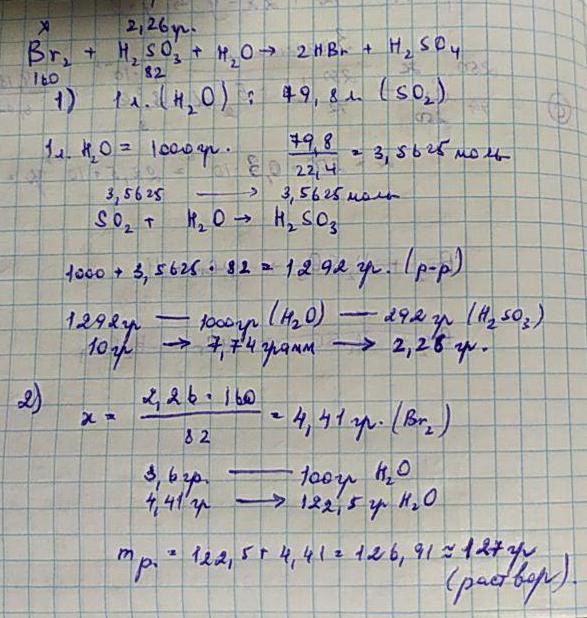 x 2,26гр.
Br₂ + H₂SO₃ + H₂O → 2HBr + H₂SO₄
160 82
1) 1л. (H₂O) : 79,8л. (SO₂)
1л. H₂O = 1000гр. 79,8/22,4 = 3,5625 моль
3,5625 → 3,5625 моль
SO₂ + H₂O → H₂SO₃
1000 + 3,5625 · 82 = 1292 гр. (р-р)
1292гр — 1000гр (H₂O) — 292 гр (H₂SO₃)
10гр → 7,74 грамм → 2,26 гр.
2) x = 2,26 · 160 / 82 = 4,41 гр. (Br₂)
3,6гр. — 100гр H₂O
4,41гр → 122,5гр H₂O
m р. = 122,5 + 4,41 = 126,91 ≈ 127гр
(раствор).